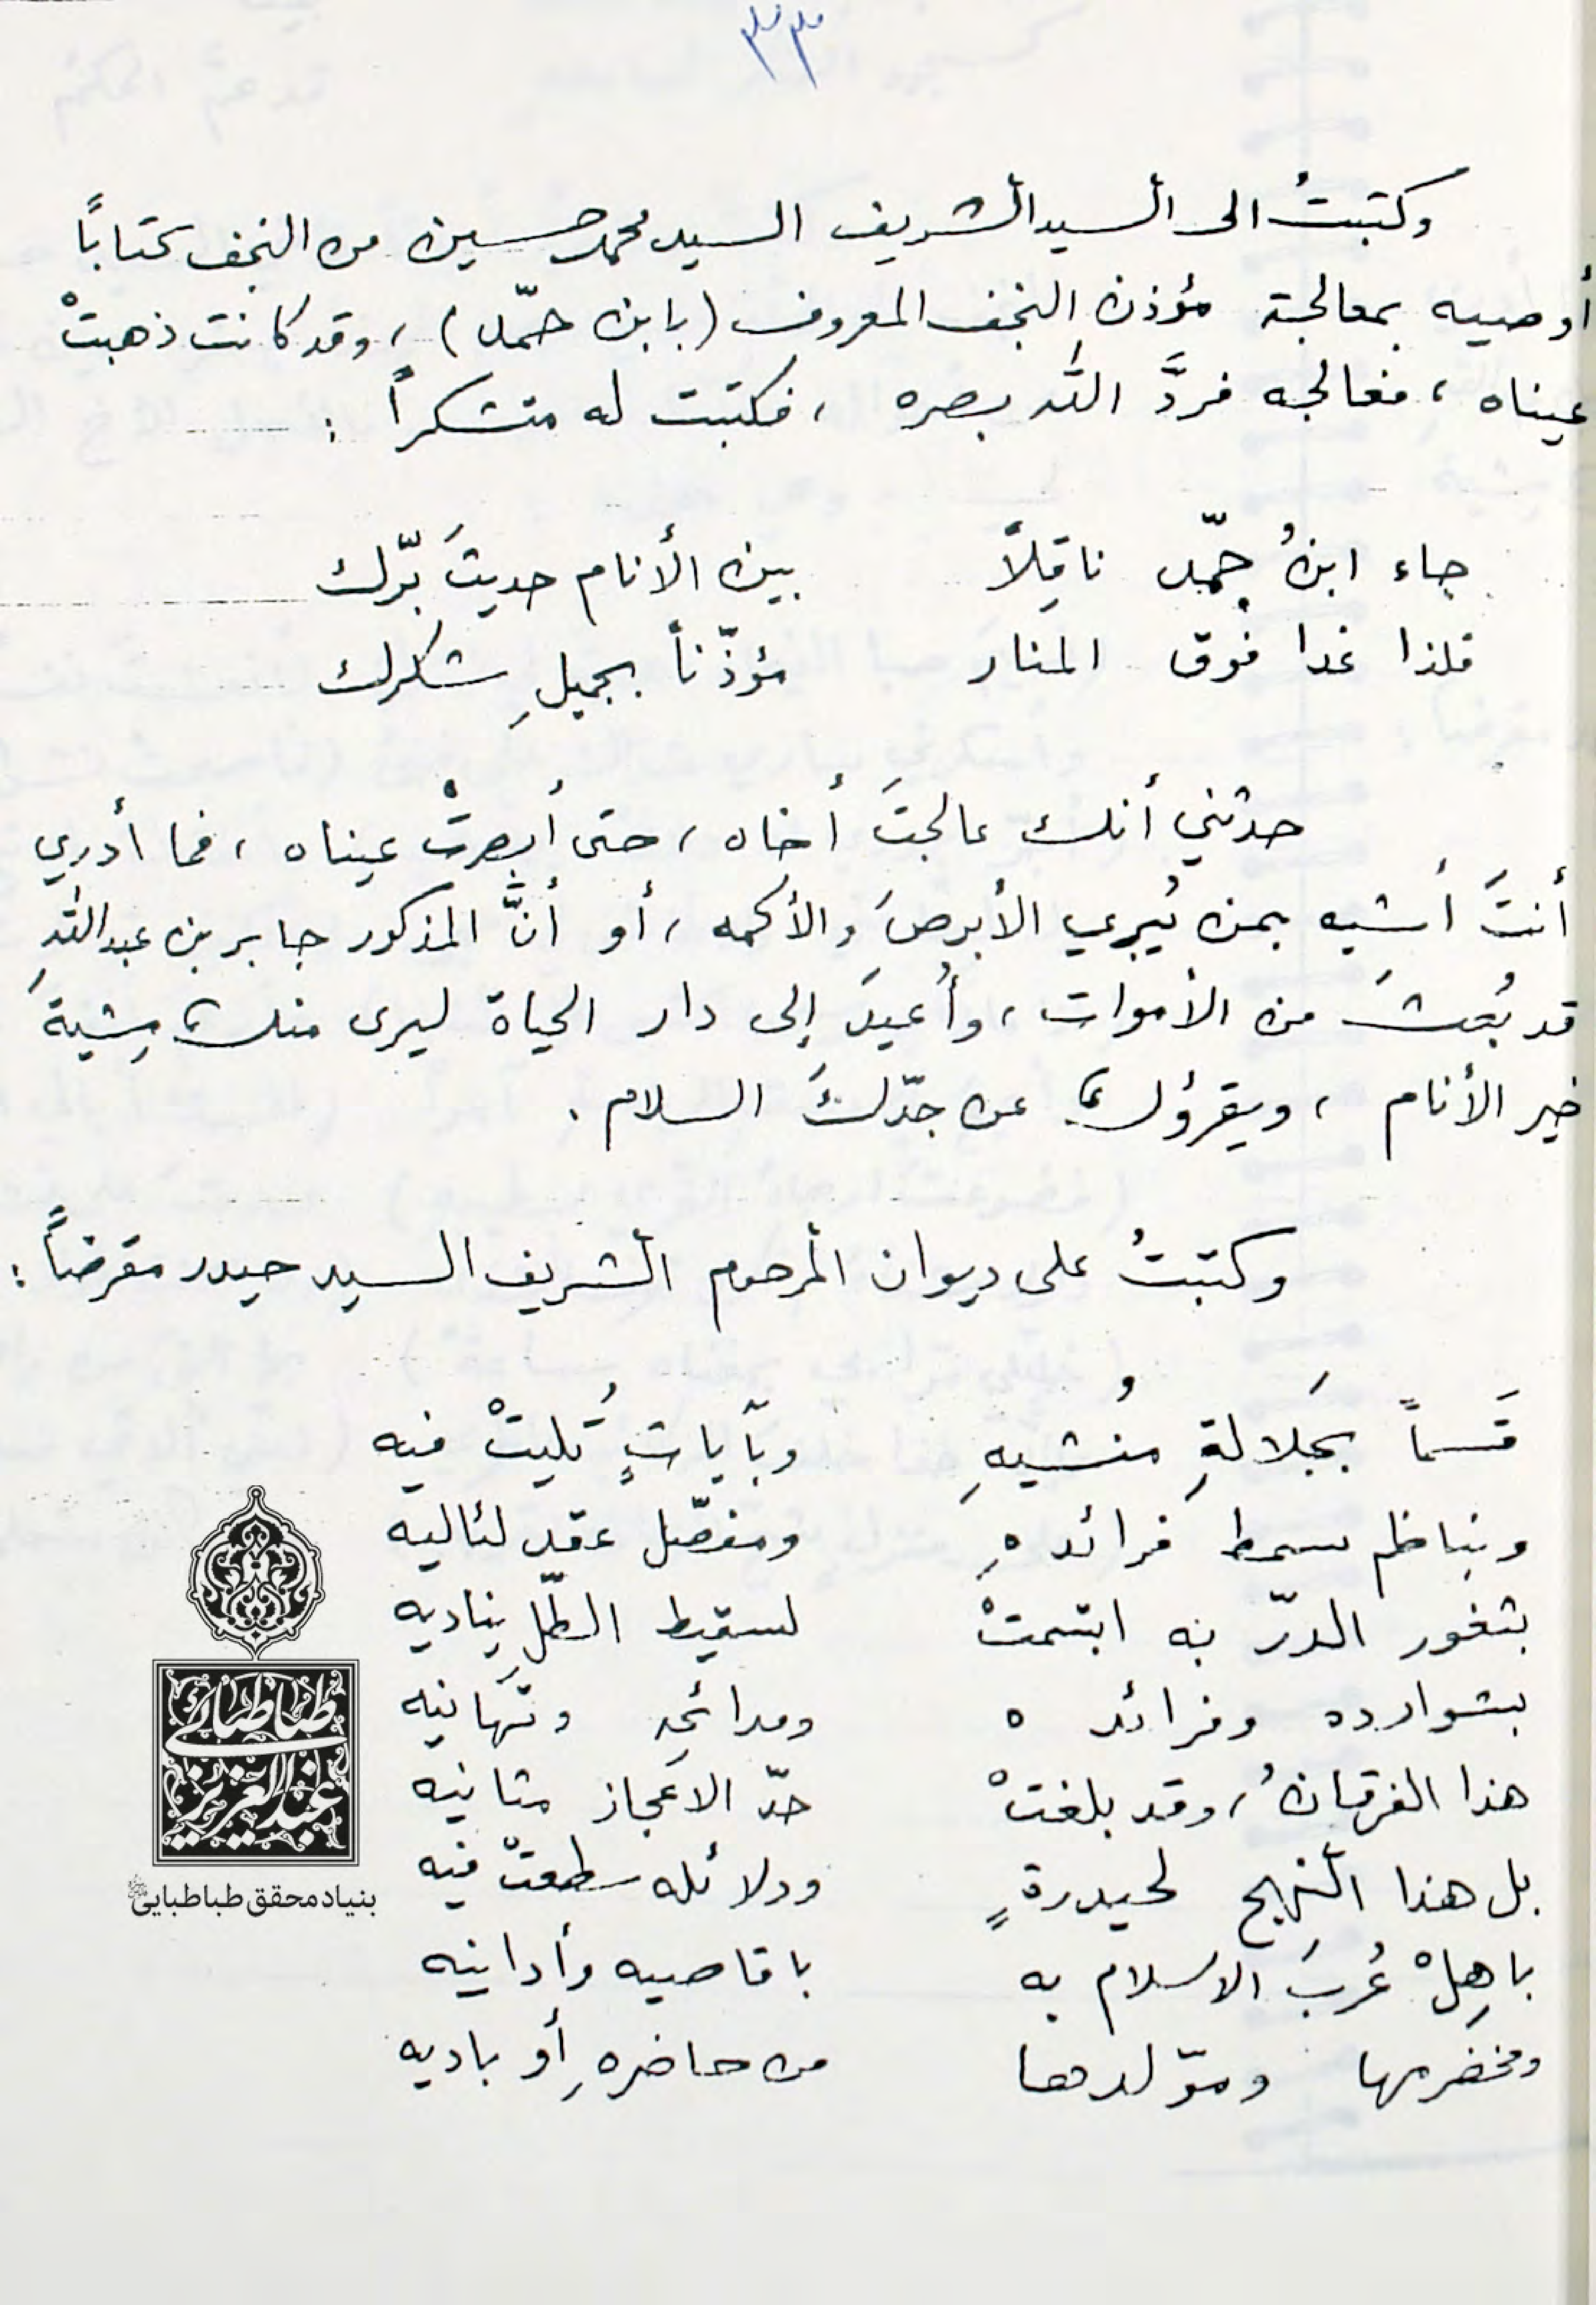 ٣٣
وكتبتُ الى السيد الشريف السيد محمد حسين من النجف كتاباً
أوصيه بمعالجة مؤذن النجف المعروف (بابن حمّد) ، وقد كانت ذهبتْ
عيناه ، فعالجه فردَّ الله بصره ، فكتبت له متشكراً :
جاء ابنُ حمّد ناقِلاً بين الأنام حديثَ برّك
فلذا غدا فوق المنار مؤذّناً بجميلِ شكرك
حدثني أنك عالجتَ أخاه ، حتى أبصرتْ عيناه ، فما أدري
أنتَ أشبه بمن يُبري الأبرصَ والأكمه ، أو أنَّ المذكور جابر بن عبد اللهِ
قد بُعثَ من الأموات ، وأُعيدَ إلى دار الحياة ليرى منك مِشيةَ
خير الأنام ، ويقرؤك عن جدّكَ السلام .
وكتبتُ على ديوان المرحوم الشريف السيد حيدر مقرضاً :
قَسماً بجَلالةِ مُنشيهِ وبآياتٍ تُليتْ فيه
وبناظم سمط فرائدهِ ومفصّل عقد لئاليه
بثغور الدرّ به ابتسمتْ لسقيط الطلّ يناديه
بشوارده وفرائده ومدائحِه وتَهانيه
هذا الفرقانُ ، وقد بلغتْ حدّ الاعجاز مثانيه
بل هذا النهج لحيدرةٍ ودلائله سطعتْ فيه
باهِلْ عُربَ الاسلام به باقاصيه وأدانيه
ومخضرمها ومولّدها من حاضرهِ أو باديه
طباطبائي
عبدالعزيز
بنیاد محقق طباطبایی